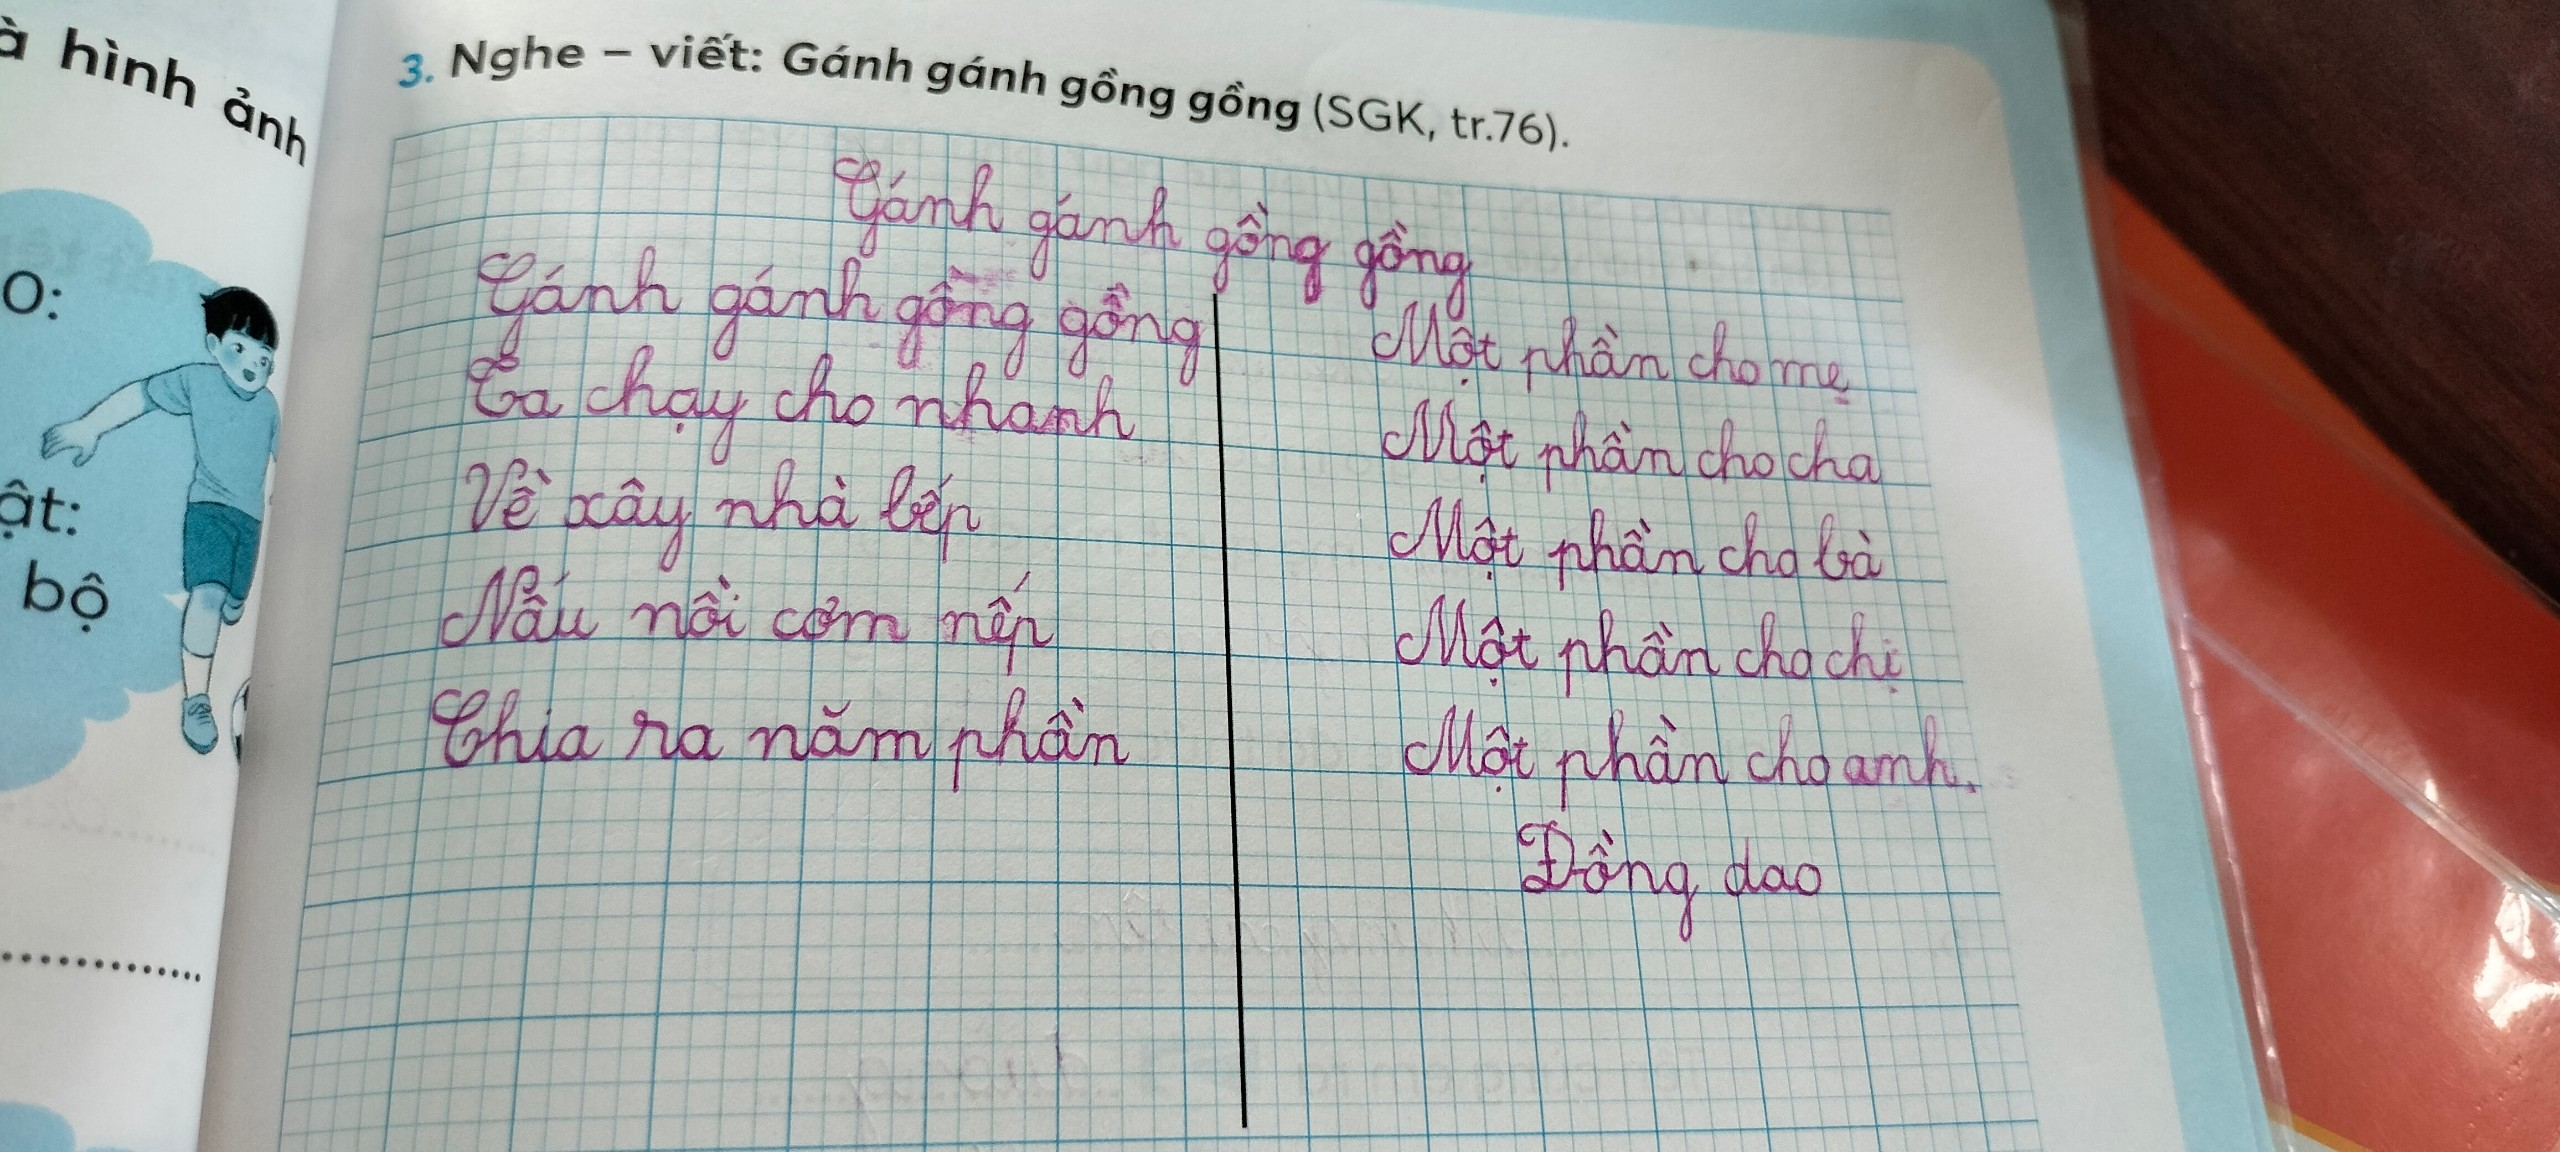 à hình ảnh
O:
ật:
bộ
3. Nghe – viết: Gánh gánh gồng gồng (SGK, tr.76).
Gánh gánh gồng gồng
Gánh gánh gồng gồng
Ta chạy cho nhanh
Về xây nhà bếp
Nấu nồi cơm nếp
Chia ra năm phần
Một phần cho mẹ
Một phần cho cha
Một phần cho bà
Một phần cho chị
Một phần cho anh.
Đồng dao